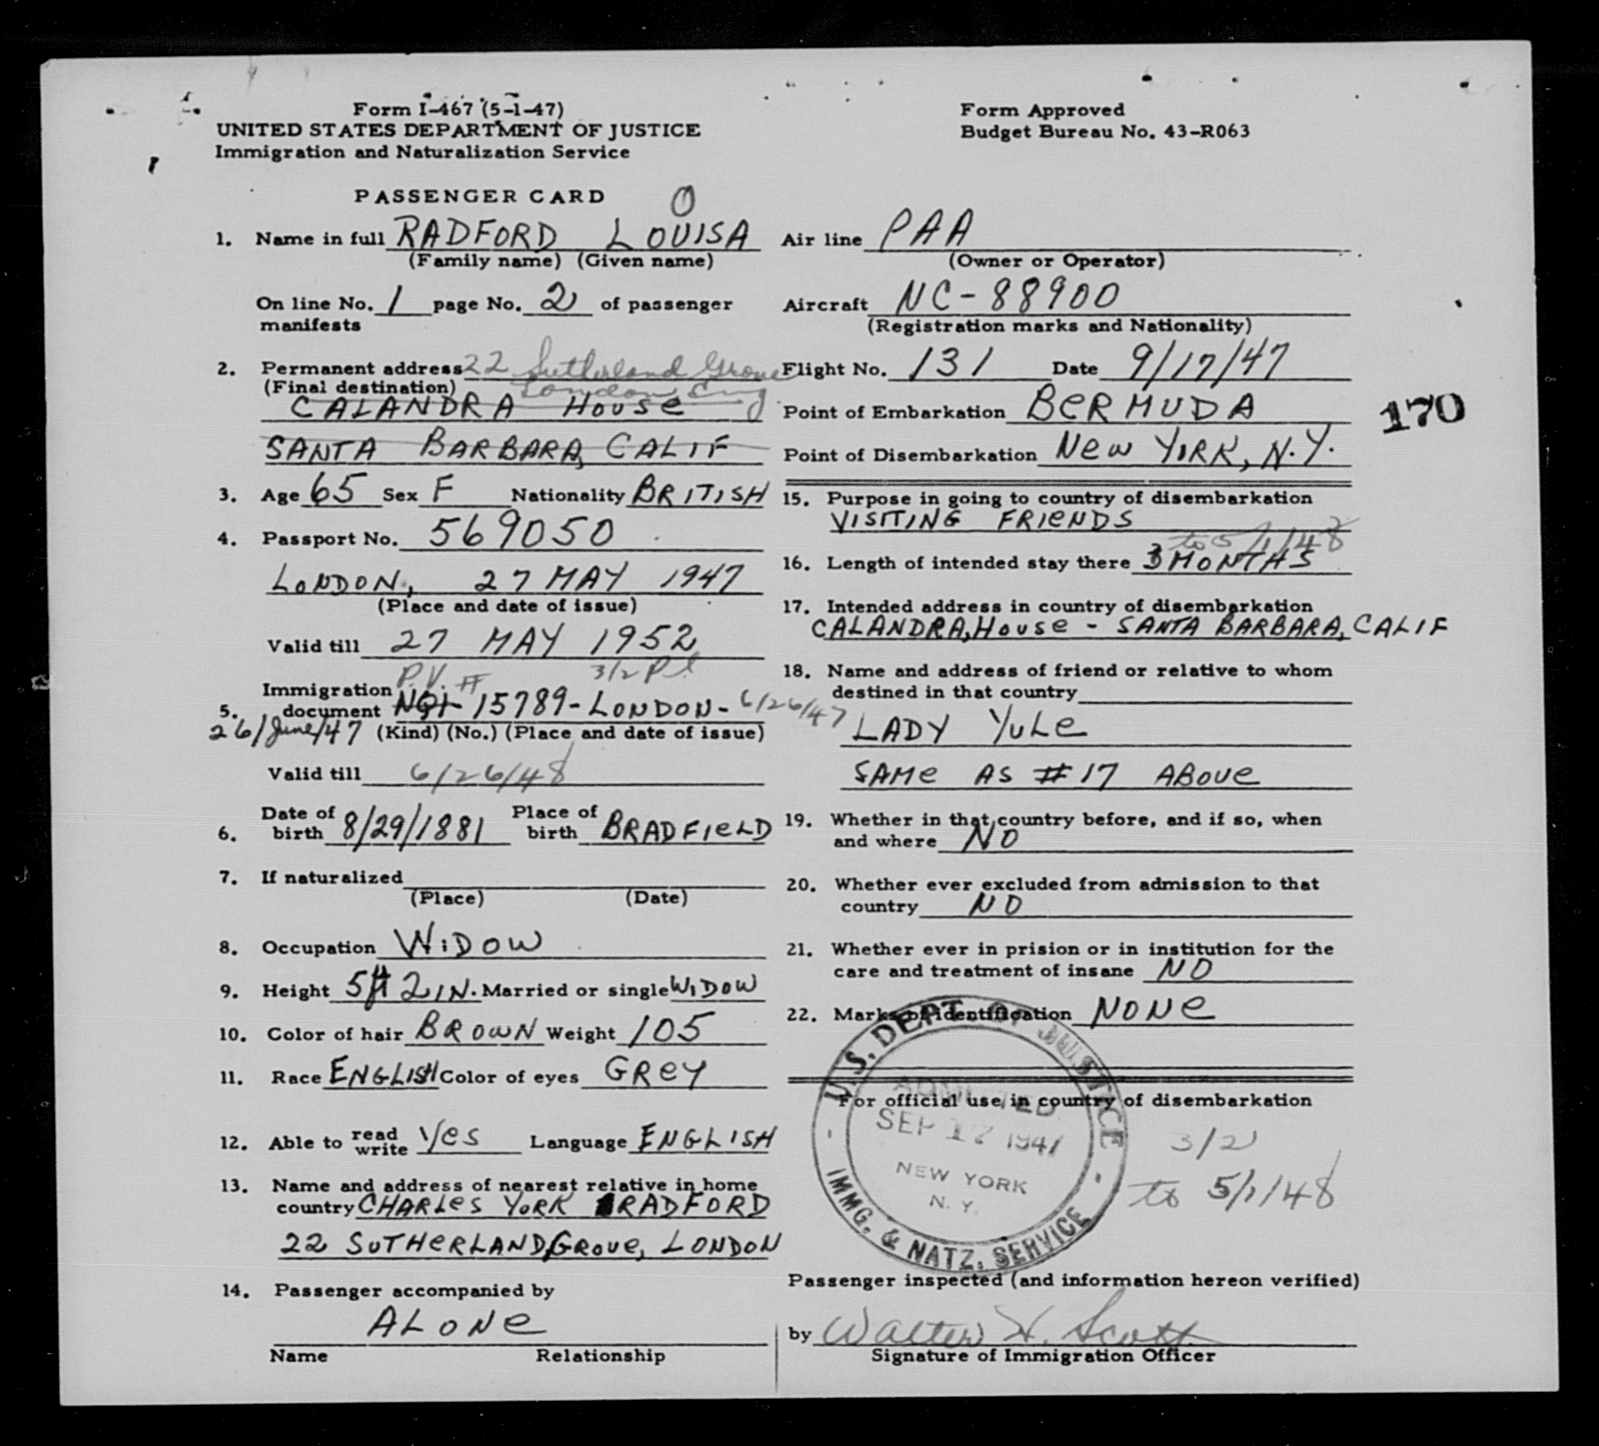 Form I-467 (5-1-47)
UNITED STATES DEPARTMENT OF JUSTICE
Immigration and Naturalization Service
Form Approved
Budget Bureau No. 43-R063
PASSENGER CARD
0
1. Name in full RADFORD LOUISA
(Family name) (Given name)
On line No. 1 page No. 2 of passenger
manifests
2. Permanent address 22 Sutherland Grove
(Final destination) London Eng
CALANDRA HOUSE
SANTA BARBARA, CALIF
3. Age 65 Sex F Nationality BRITISH
4. Passport No. 569050
LONDON, 27 MAY 1947
(Place and date of issue)
Valid till 27 MAY 1952
P.V. # 3/2
Immigration
5. document NQI 15789-LONDON- 6/26/47
26/June/47 (Kind) (No.) (Place and date of issue)
Valid till 6/26/48
6. Date of birth 8/29/1881 Place of birth BRADFIELD
7. If naturalized
(Place) (Date)
8. Occupation WIDOW
9. Height 5ft 2IN. Married or single WIDOW
10. Color of hair BROWN Weight 105
11. Race ENGLISH Color of eyes GREY
12. Able to read write Yes Language ENGLISH
13. Name and address of nearest relative in home
country CHARLES YORK RADFORD
22 SUTHERLAND, GROVE, LONDON
14. Passenger accompanied by
ALONE
Name Relationship
Air line PAA
(Owner or Operator)
Aircraft NC-88900
(Registration marks and Nationality)
Flight No. 131 Date 9/17/47
Point of Embarkation BERMUDA
170
Point of Disembarkation NEW YORK, N.Y.
15. Purpose in going to country of disembarkation
VISITING FRIENDS
to 5/1/48
16. Length of intended stay there 3 MONTHS
17. Intended address in country of disembarkation
CALANDRA, HOUSE - SANTA BARBARA, CALIF
18. Name and address of friend or relative to whom
destined in that country
LADY YULE
SAME AS #17 ABOVE
19. Whether in that country before, and if so, when
and where NO
20. Whether ever excluded from admission to that
country NO
21. Whether ever in prision or in institution for the
care and treatment of insane NO
22. Marks of identification NONE
For official use in country of disembarkation
U.S. DEPT. OF JUSTICE
ADMITTED
SEP 17 1947
NEW YORK
N. Y.
IMMG. & NATZ. SERVICE
3/2
to 5/1/48
Passenger inspected (and information hereon verified)
by Walter H. Scott
Signature of Immigration Officer